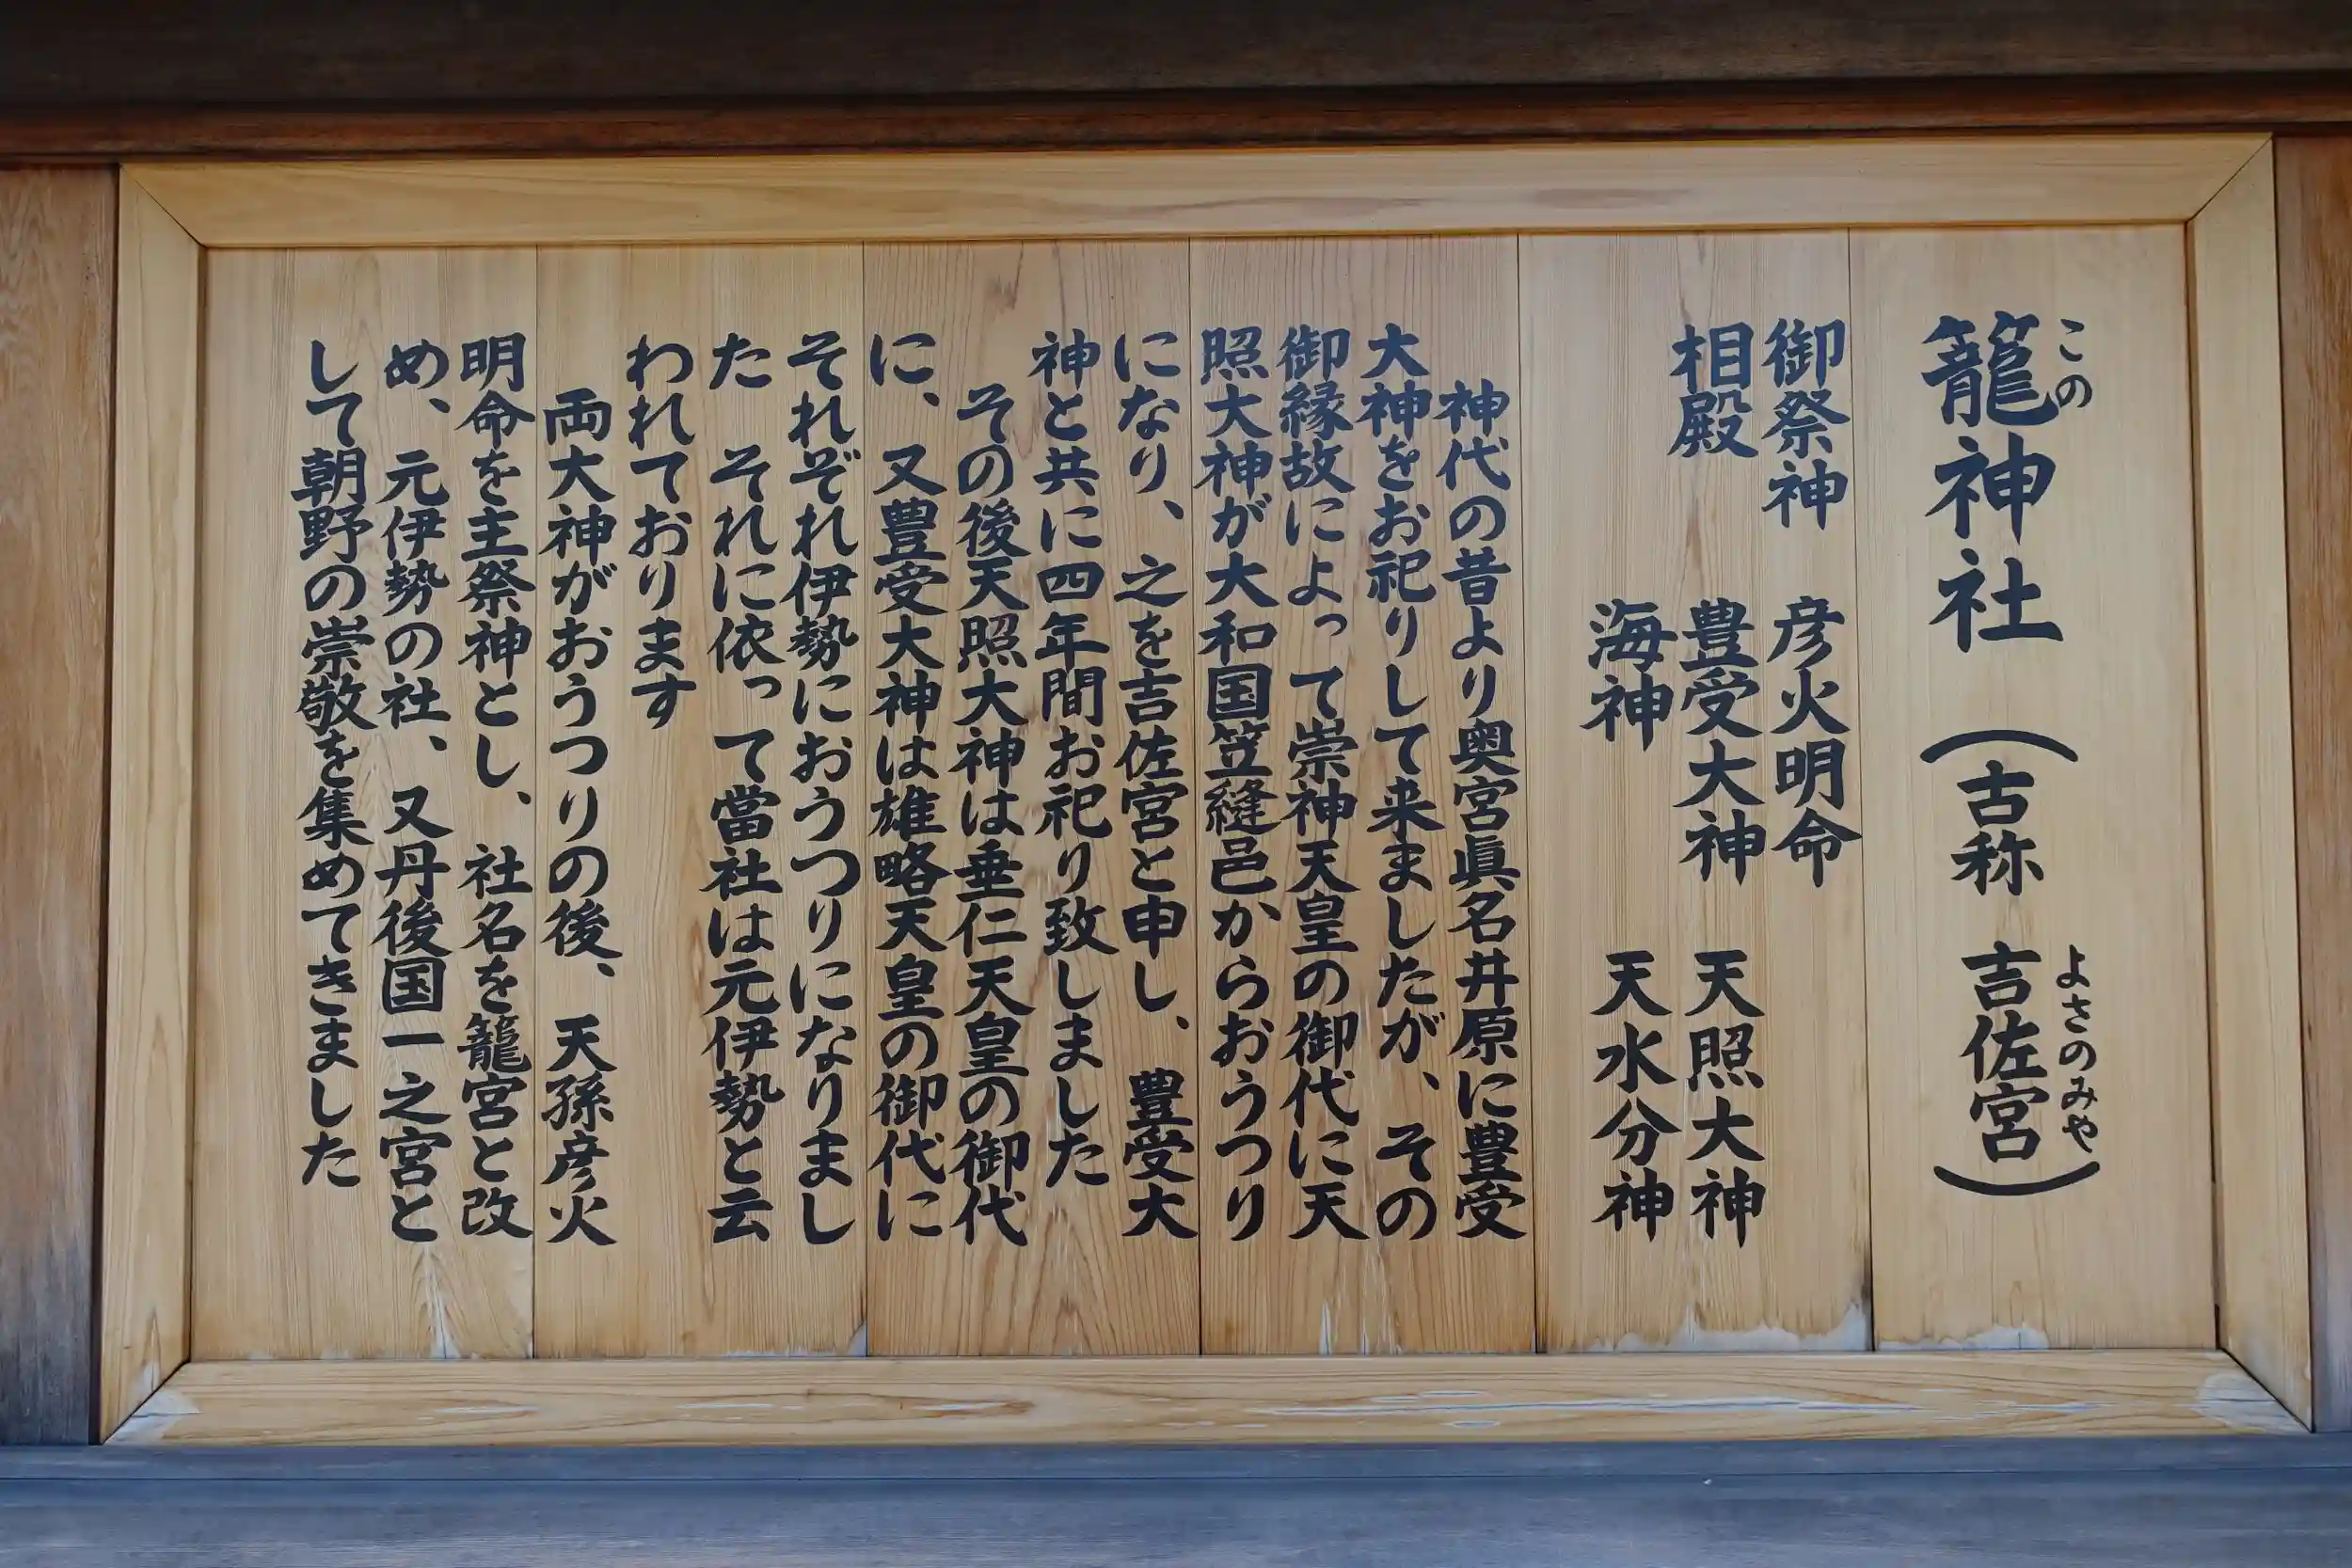 籠神社(古称 吉佐宮)
この
よさのみや
御祭神 彦火明命
相殿 豊受大神 天照大神
海神 天水分神
神代の昔より奥宮眞名井原に豊受
大神をお祀りして来ましたが、その
御縁故によって崇神天皇の御代に天
照大神が大和国笠縫邑からおうつり
になり、之を吉佐宮と申し、豊受大
神と共に四年間お祀り致しました
その後天照大神は垂仁天皇の御代
に、又豊受大神は雄略天皇の御代に
それぞれ伊勢におうつりになりまし
た それに依って當社は元伊勢と云
われております
両大神がおうつりの後、天孫彦火
明命を主祭神とし、社名を籠宮と改
め、元伊勢の社、又丹後国一之宮と
して朝野の崇敬を集めてきました